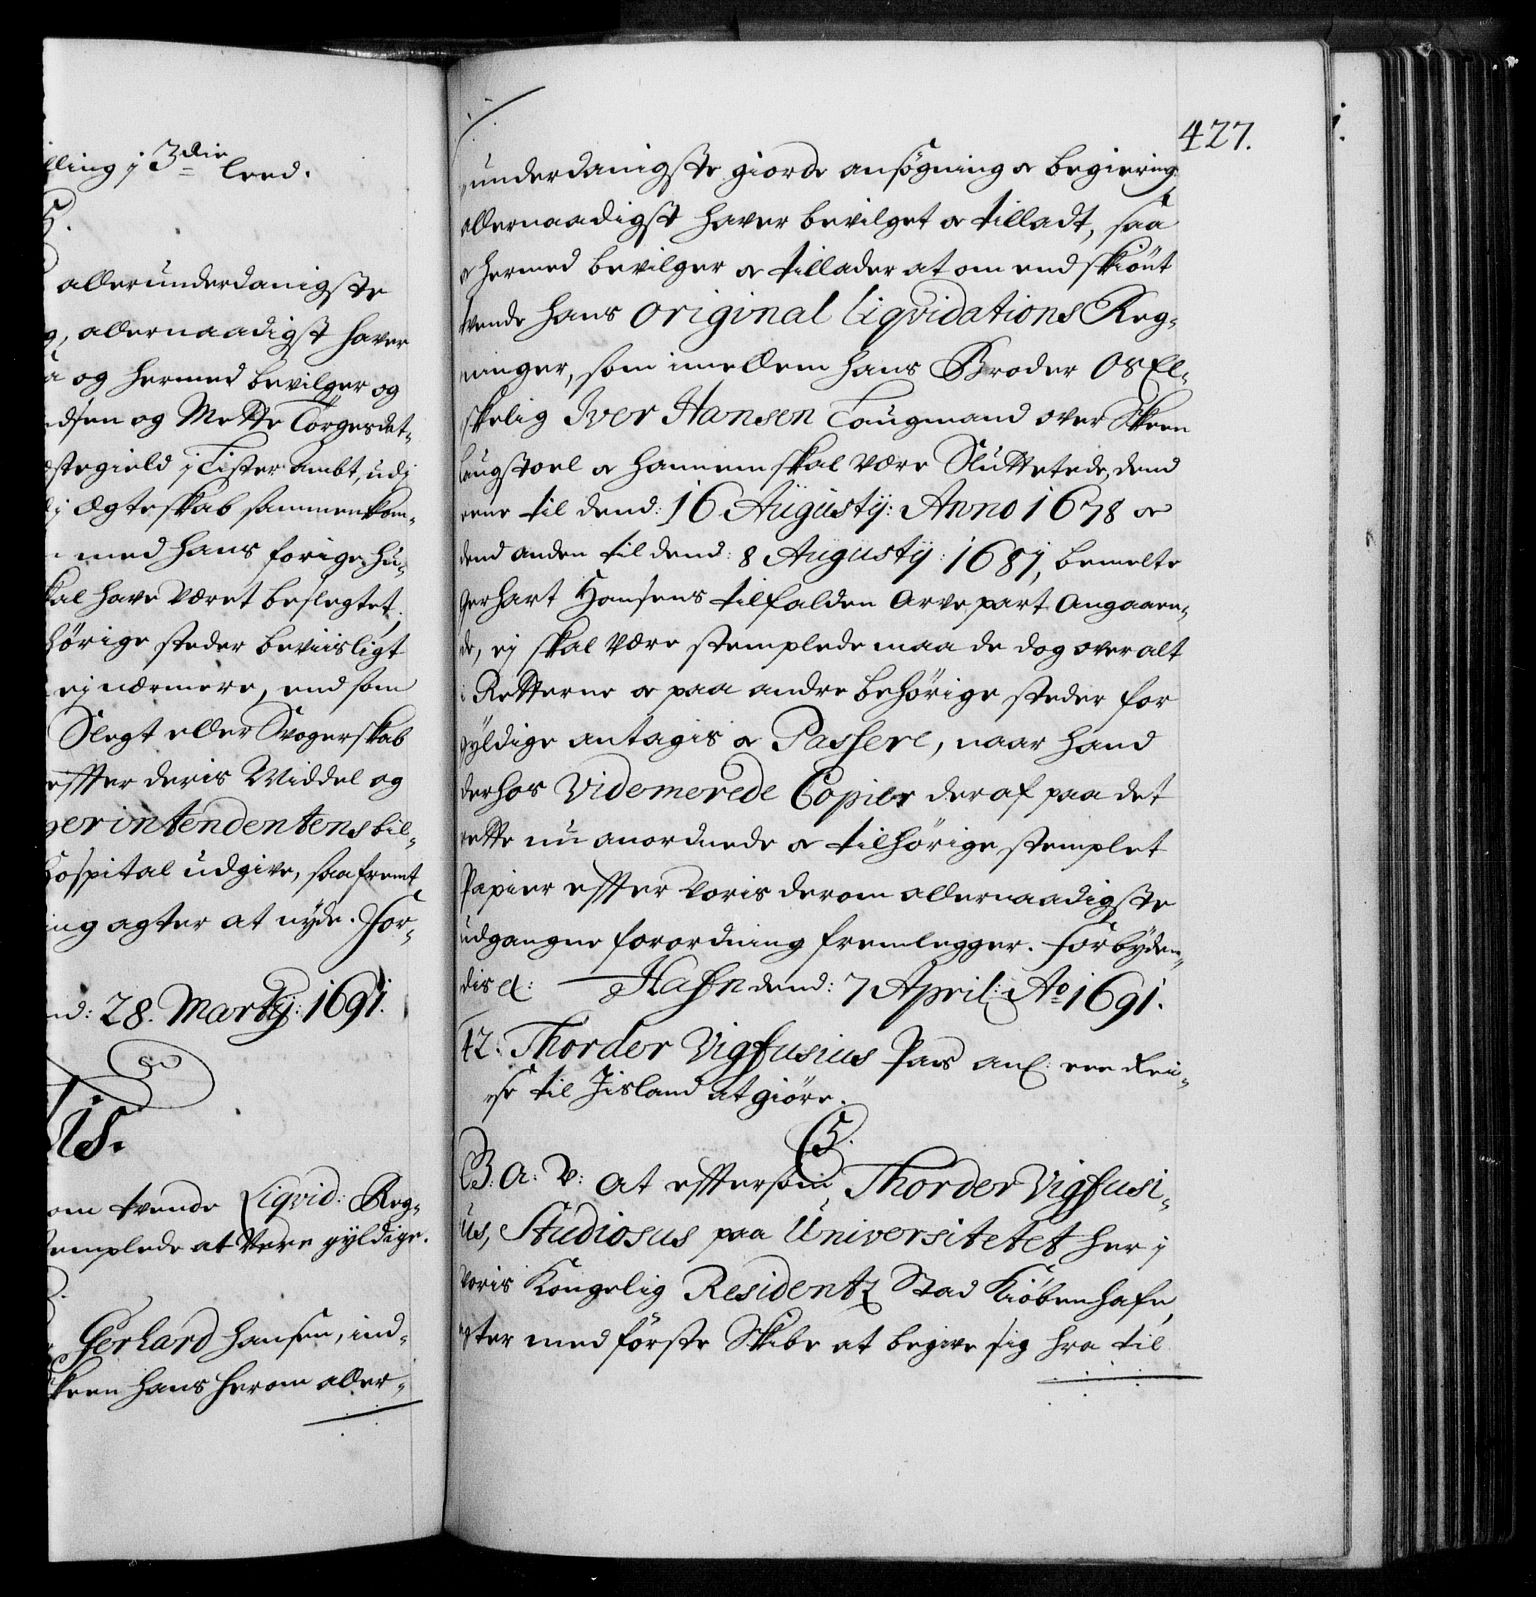 lling i 3die leed.
5.
allerunderdanigste
g, allernaadigst haver
a og hermed bevilger og
dsen og Mette Torgersdat-
stegield i Lister ambt, udi
i Ægteskab sammenkom-
med hans forige Hu-
kal have været beslegtet,
hörige steder beviisligt
ej nærmere, end som
Slegt eller Svogerskab
effter deris Middel og
perintendentens bil-
Hospital udgive, saa fremt
ing agter at nyde. For-
nd: 28. Martij: 1691.
lis.
om tvende Liqvid: Reg-
templede at Vere gyldige.
Gerhard Hansen, ind-
Skeen hans herom aller-
427.
underdanigste giorde ansögning & begiering
allernaadigst haver bevilget & tilladt, saa
& hermed bevilger & tillader at om end skiönt
tvende hans Original Liqvidations Reg-
ninger, som imellem hans Broder Os El-
skelig Iver Hansen Laugmand over Skeen
Laugstoel & hannem skal være Sluttetede, dend
eene til dend: 16 Augustij: Anno 1678 &
dend anden til dend: 8 Augustij: 1681, bemelte
Gerhart Hansens tilfalden Arve part Angaaen-
de, ej skal være stemplede maa de dog overalt
i Retterne & paa andre behörige steder for
gyldige antagis & Passere, naar hand
derhos Videmerede Copier deraf paa det
rette nu anordnede & tilhörige stemplet
Papier effter voris derom allernaadigste
udgangne forordning fremlegger. Forbyden-
dis &: Hafn dend: 7 April: Ao 1691.
42: Thorder Vigfusius Pas anl: een Rei-
se til Iisland at giöre.
5.
G. A: V: at effersom Thorder Vigfusi-
us, Studiosus paa Universitetet her i
voris Kongelig Residentz Stad Kiöbenhafn,
agter med förste Skibe at begive sig hra til